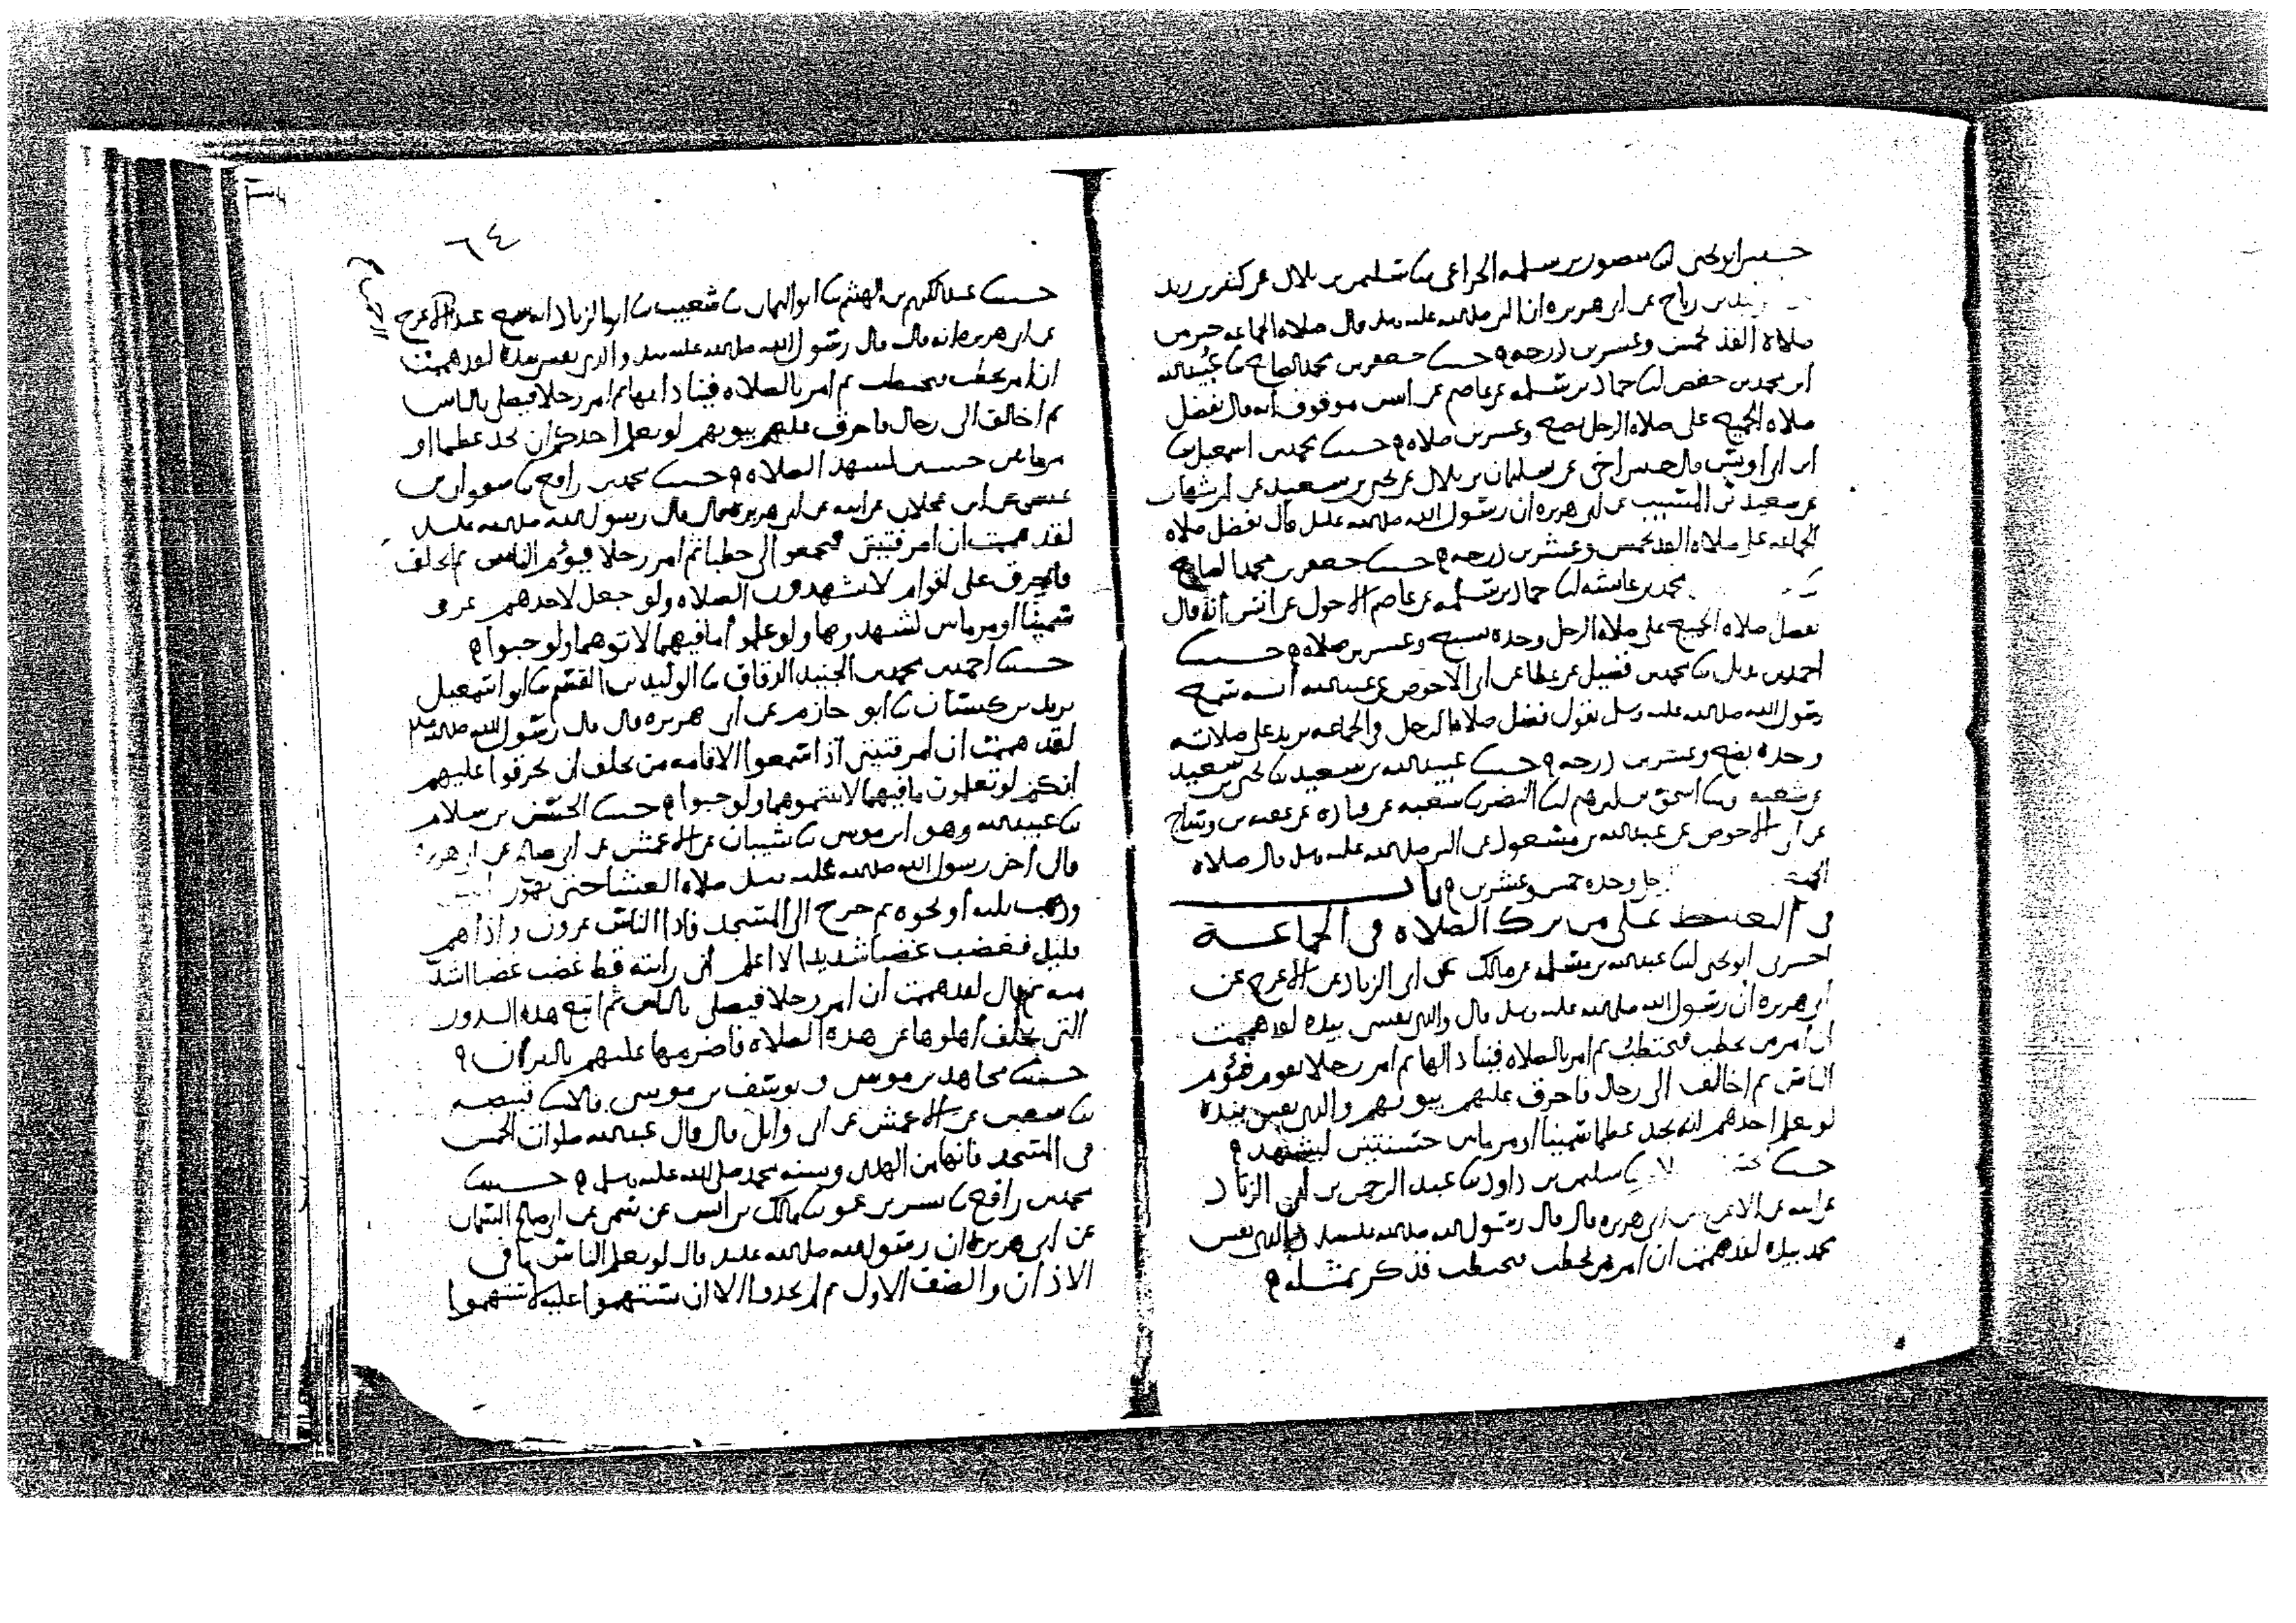 حدثني ابو يحيى انا منصور بن سلمه الخزاعي نا سليمن بن بلال عن كثير بن زيد
بن رباح عن ابي هريره ان النبي صلى الله عليه وسلم قال صلاه الجماعه خير من
صلاه الفذ بخمس وعشرين درجه حدثنا جعفر بن محمد الصايغ نا عبيدالله
ابن محمد بن حفص انا حماد بن سلمه عن عاصم عن انس موقوف انه قال تفضل
صلاه الجميع على صلاه الرجل بضع وعشرين صلاه حدثنا محمد بن اسمعيل نا
ابن ابي اويس قال حدثني اخي عن سليمان بن بلال عن يحيى بن سعيد عن ابن شهاب
عن سعيد بن المسيب عن ابي هريره ان رسول الله صلى الله عليه قال تفضل صلاه
الجماعه على صلاه الفذ بخمس وعشرين درجه حدثنا جعفر بن محمد الصايغ
محمد بن عايشه انا حماد بن سلمه عن عاصم الاحول عن انس انه قال
تفضل صلاه الجميع على صلاه الرجل وحده سبع وعشرين صلاه حدثنا
احمد بن بديل نا محمد بن فضيل عن عطا عن ابي الاحوص عن عبدالله انه سمع
رسول الله صلى الله عليه وسلم يقول فضل صلاه الرجل في الجماعه يزيد على صلاته
وحده بضع وعشرين درجه حدثنا عبيدالله بن سعيد نا يحيى بن سعيد
عن شعبه ونا اسحق بن ابرهيم انا النضر نا شعبه عن قتاده عن عقبه بن وساج
عن ابي الاحوص عن عبدالله بن مسعود عن النبي صلى الله عليه وسلم قال صلاه
وحده خمس وعشرين باب
في التغليظ على من ترك الصلاه في الجماعة
اخبرني ابو يحيى انا عبدالله بن مسلمه عن مالك عن ابي الزناد عن الاعرج عن
ابي هريره ان رسول الله صلى الله عليه وسلم قال والذي نفسي بيده لقد هممت
ان امر من يحطب فيحتطب ثم امر بالصلاه فينادا لها ثم امر رجلا يقوم فيؤم
الناس ثم اخالف الى رجال فاحرق عليهم بيوتهم والذي نفسي بيده
لو يعلم احدهم انه يجد عظما سمينا او مرماتين حسنتين ليشهد
حدثنا سليمن بن داود نا عبد الرحمن بن ابي الزناد
عن ابيه عن الاعرج عن ابي هريره قال قال رسول الله صلى الله عليه وسلم والذي نفس
محمد بيده لقد هممت ان امر من يحطب فيحطب فذكر بمثله
٦٤
حدثنا عبد الكريم بن الهيثم نا ابو اليمان نا شعيب نا ابو الزناد انه سمع عبد الاعرج
عن ابي هريره انه قال قال رسول الله صلى الله عليه وسلم والذي نفسي بيده لقد هممت
ان امر بحطب فيحطب ثم امر بالصلاه فينادا بها ثم امر رجلا فيصلي بالناس
ثم اخالف الى رجال فاحرق عليهم بيوتهم لو يعلم احدكم ان يجد عظما او
مرماتين حسنتين لشهد الصلاه حدثنا محمد بن رافع نا صفوان بن
عيسى عن ابن عجلان عن ابيه عن ابي هريره قال قال رسول الله صلى الله عليه
لقد هممت ان امر فتيتي فيجمعوا الي حطبا ثم امر رجلا فيؤم الناس ثم اخلف
فاحرق على اقوام لا يشهدون الصلاه ولو جعل لاحدهم عرق
سمينا او مرماتين لشهدوها ولو علموا ما فيهما لاتوهما ولو حبوا
حدثنا احمد بن محمد بن الجنيد الدقاق نا الوليد بن القسم نا ابو اسمعيل
يزيد بن كيسان نا ابو حازم عن ابي هريره قال قال رسول الله صلى الله عليه
لقد هممت ان امر فتيتي اذا سمعوا الاقامه من تخلف ان يحرقوا عليهم
انكم لو تعلمون ما فيهما لاتيتموهما ولو حبوا حدثنا الحسن بن سلام
نا عبيدالله وهو ابن موسى نا شيبان عن الاعمش عن ابي صالح عن ابي هريره
قال اخر رسول الله صلى الله عليه وسلم صلاه العشا حتى تهور
وذهب ثلثه او نحوه ثم خرج الى المسجد فاذا الناس عزون واذا هم
قليل فغضب غضبا شديدا لا اعلم اني رايته قط غضب غضبا اشد
منه ثم قال لقد هممت ان امر رجلا فيصلي بالناس ثم اتبع هذه الدور
التي تخلف اهلوها عن هذه الصلاه فاضرمها عليهم بالنيران
حدثنا مجاهد بن موسى ويوسف بن موسى قالا نا قبيصه
نا سفين عن الاعمش عن ابي وايل قال قال عبدالله صلوات الخمس
في المسجد فانها من الهدى وسنه محمد صلى الله عليه وسلم حدثنا
محمد بن رافع نا بشر بن عمر نا مالك بن انس عن سمي عن ابي صالح السمان
عن ابي هريره ان رسول الله صلى الله عليه قال لو يعلم الناس ما في
الاذان والصف الاول ثم لم يجدوا الا ان يستهموا عليه لاستهموا